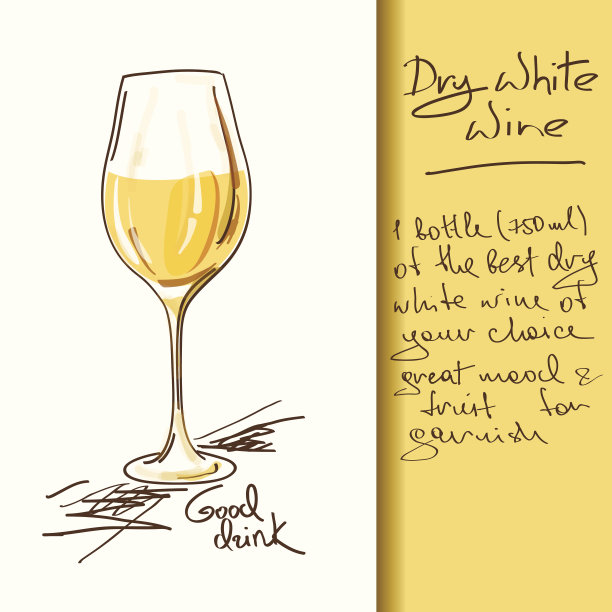 Dry White
Wine
1 bottle (750ml)
of the best dry
white wine of
your choice
great mood &
fruit for
garnish
Good
drink